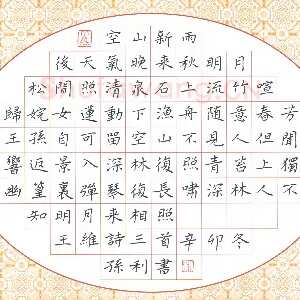 空山新雨
後天氣晚來秋明月
松間照清泉石上流竹喧
歸浣女蓮動下漁舟隨意春芳
王孫自可留空山不見人但聞
響返景入深林復照青苔上獨
幽篁裏彈琴復長嘯深林人不
知明月來相照
王維詩三首辛卯冬
孫利書